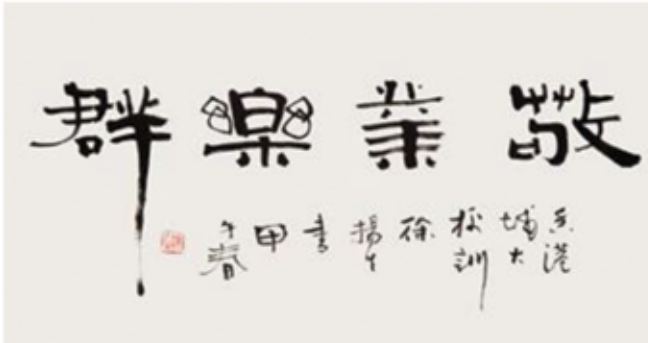 敬業樂群
香港城大校訓徐揚生書甲午春